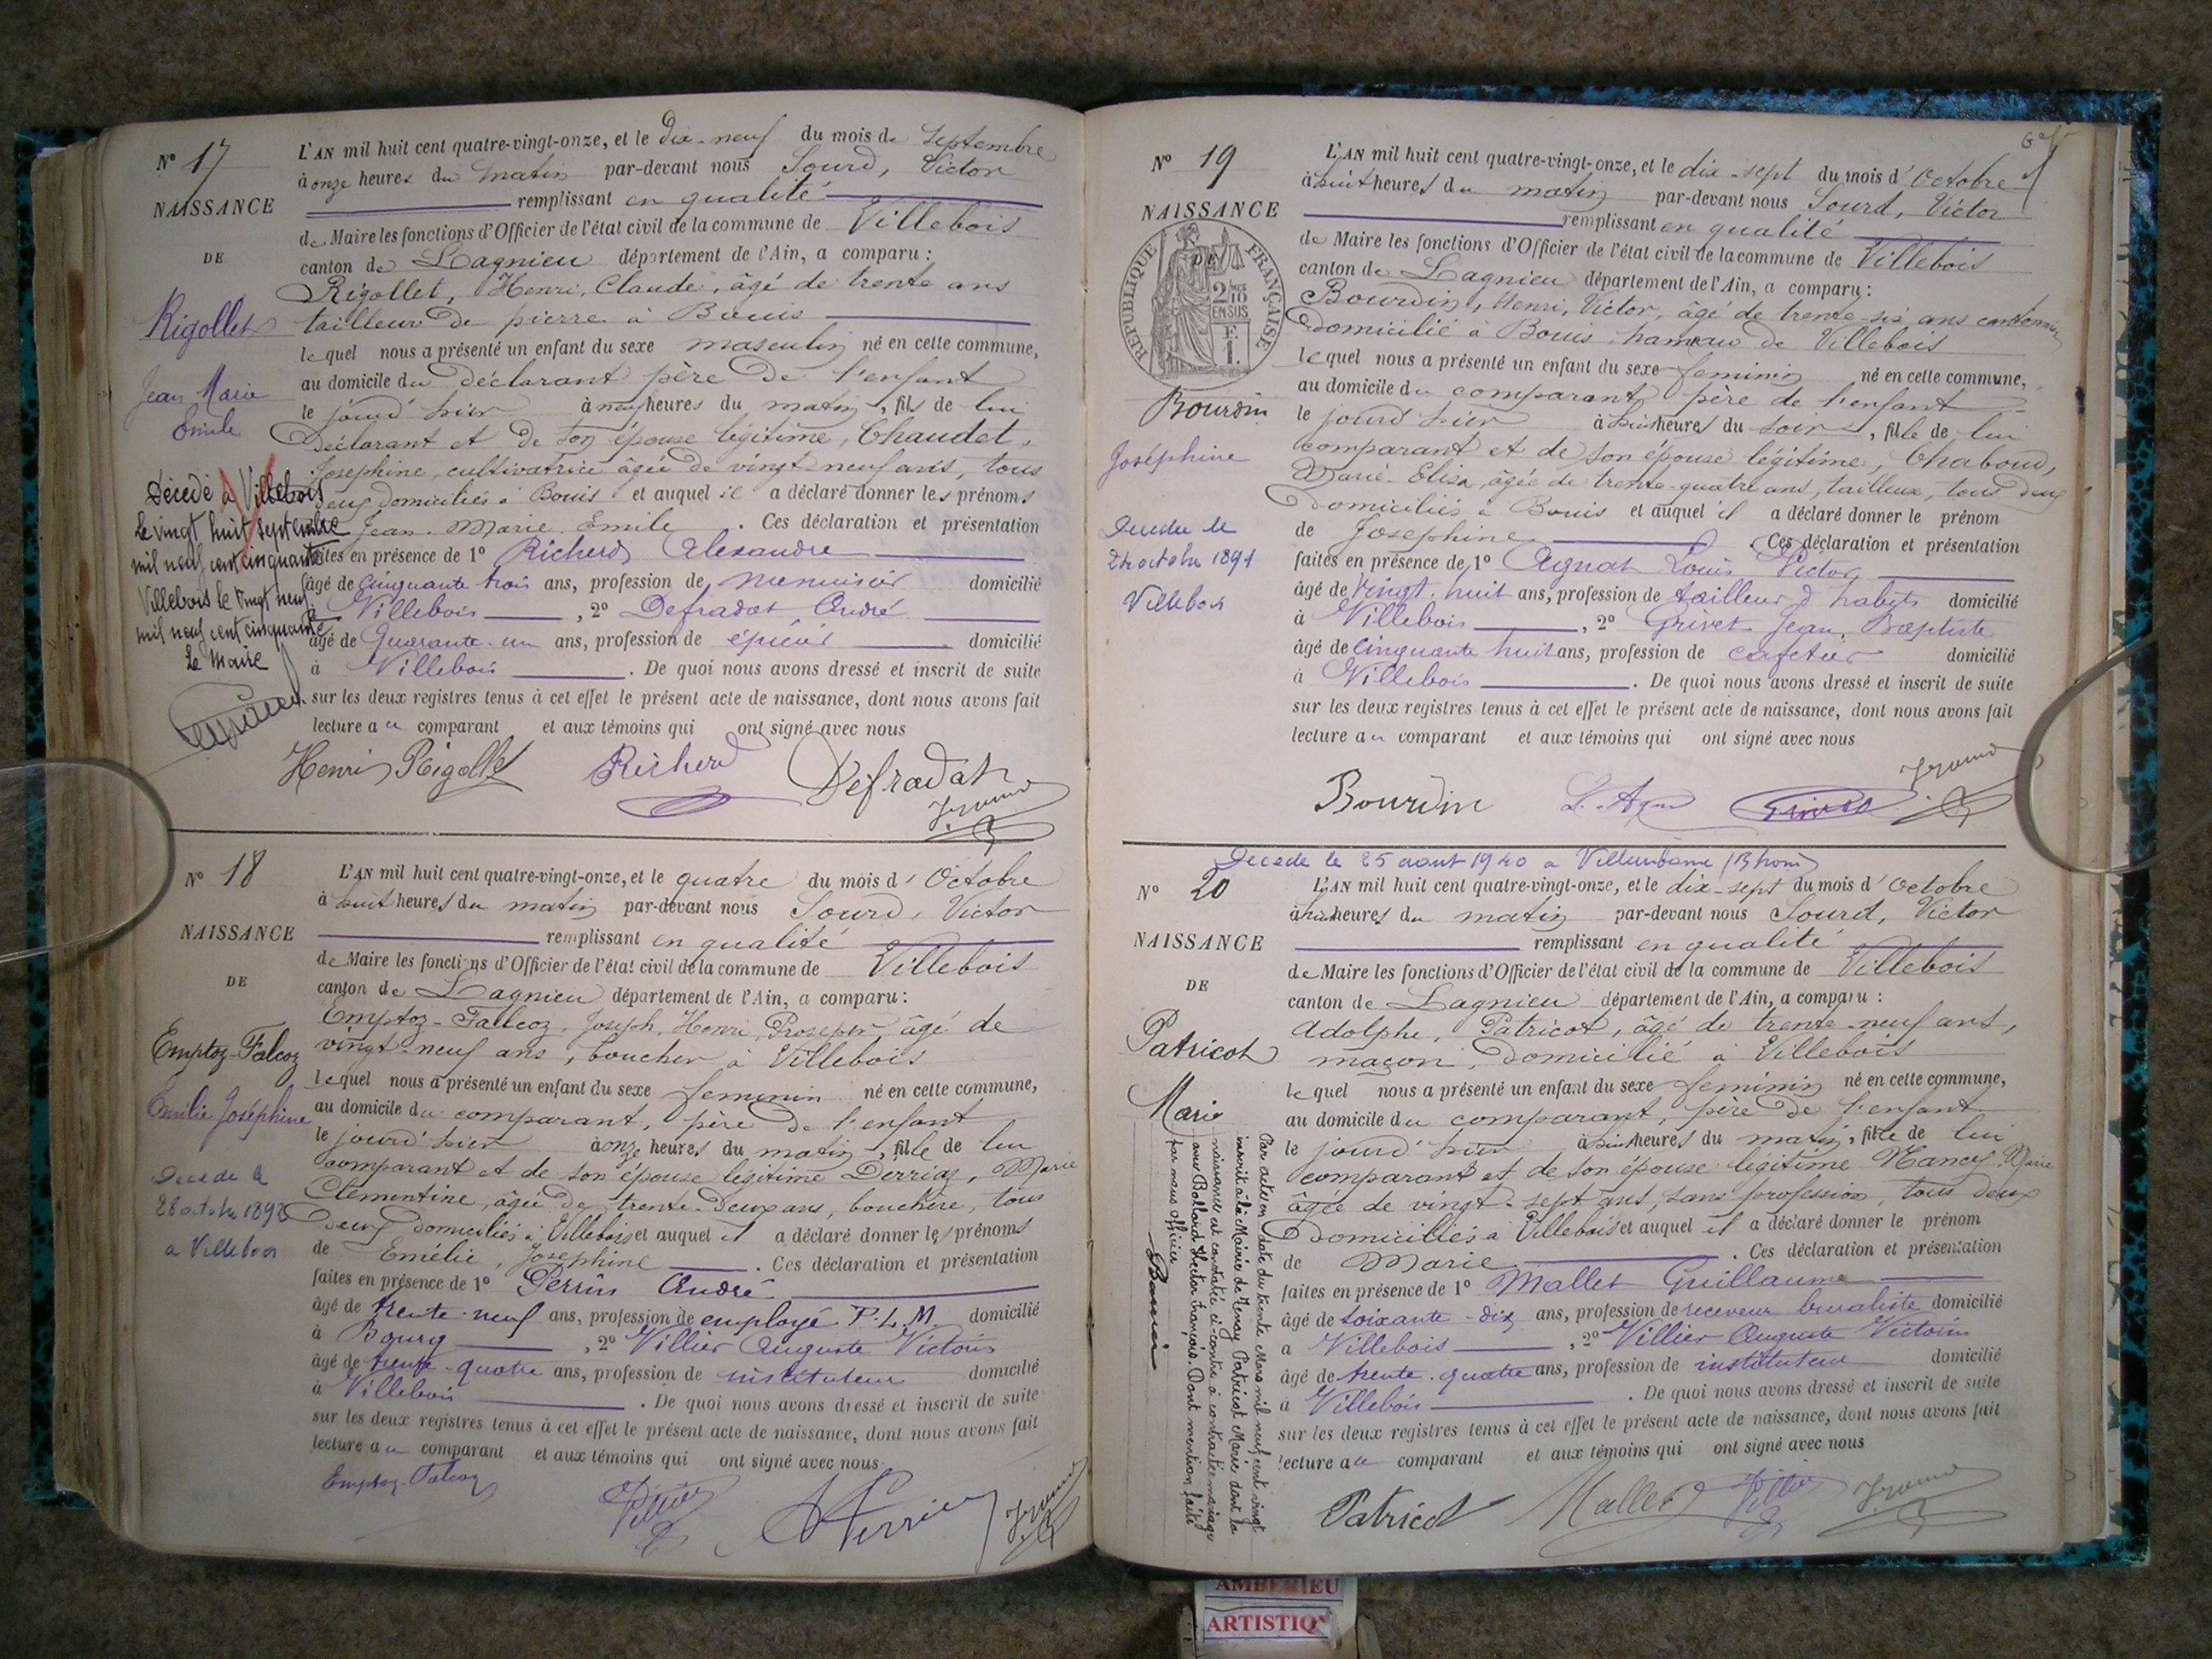 N° 17
NAISSANCE
DE
Rigollet
Jean Marie
Emile
Décédé à Villebois
le vingt huit septembre
mil neuf cent cinquante
Villebois le vingt neuf
mil neuf cent cinquante
Le Maire
L'AN mil huit cent quatre-vingt-onze, et le dix-neuf du mois de Septembre
à onze heures du matin par-devant nous Sourd, Victor
remplissant en qualité
de Maire les fonctions d'Officier de l'état civil de la commune de Villebois
canton de Lagnieu département de l'Ain, a comparu :
Rigollet, Henri, Claude, âgé de trente ans
tailleur de pierre à Bouis
lequel nous a présenté un enfant du sexe masculin né en cette commune,
au domicile du déclarant père de l'enfant
le jourd'hier à neuf heures du matin, fils de lui
déclarant et de son épouse légitime, Chaudet,
Joséphine, cultivatrice âgée de vingt-neuf ans, tous
deux domiciliés à Bouis et auquel il a déclaré donner les prénoms
de Jean-Marie Emile. Ces déclaration et présentation
faites en présence de 1° Richerd Alexandre
âgé de cinquante trois ans, profession de menuisier domicilié
à Villebois, 2° Defradat André
âgé de Quarante-un ans, profession de épicier domicilié
à Villebois. De quoi nous avons dressé et inscrit de suite
sur les deux registres tenus à cet effet le présent acte de naissance, dont nous avons fait
lecture au comparant et aux témoins qui ont signé avec nous
Henri Rigollet Richerd Defradat
N° 18
NAISSANCE
DE
Emptoz-Falcoz
Emilie Joséphine
Decede le
28 octobre
a Villebois
L'AN mil huit cent quatre-vingt-onze, et le quatre du mois d'Octobre
à huit heures du matin par-devant nous Sourd, Victor
remplissant en qualité
de Maire les fonctions d'Officier de l'état civil de la commune de Villebois
canton de Lagnieu département de l'Ain, a comparu :
Emptoz-Falcoz, Joseph, Henri, Prosper âgé de
vingt-neuf ans, boucher à Villebois
lequel nous a présenté un enfant du sexe feminin né en cette commune,
au domicile du comparant, père de l'enfant
le jourd'hier à onze heures du matin, fille de lui
comparant et de son épouse légitime Derriaz, Marie
Clémentine, âgée de trente-deux ans, bouchère, tous
deux domiciliés à Villebois et auquel il a déclaré donner les prénoms
de Emélie, Joséphine. Ces déclaration et présentation
faites en présence de 1° Perrin André
âgé de trente-neuf ans, profession de employé P.L.M. domicilié
à Bourg, 2° Villier Auguste Victorin
âgé de trente-quatre ans, profession de instituteur domicilié
à Villebois. De quoi nous avons dressé et inscrit de suite
sur les deux registres tenus à cet effet le présent acte de naissance, dont nous avons fait
lecture au comparant et aux témoins qui ont signé avec nous.
Emptoz-Falcoz Villier Perrin
N° 19
NAISSANCE
DE
RÉPUBLIQUE FRANÇAISE
2/10
EN SUS
F.
1.
Bourdin
Joséphine
Decedee le
octobre 1891
Villebois
L'AN mil huit cent quatre-vingt-onze, et le dix-sept du mois d'Octobre
à huit heures du matin par-devant nous Sourd, Victor
remplissant en qualité
de Maire les fonctions d'Officier de l'état civil de la commune de Villebois
canton de Lagnieu département de l'Ain, a comparu :
Bourdin, Henri, Victor, âgé de trente-six ans
domicilié à Bouis, hameau de Villebois
lequel nous a présenté un enfant du sexe feminin né en cette commune,
au domicile du comparant père de l'enfant
le jourd'hier à huit heures du soir, fille de lui
comparant et de son épouse légitime, Chaboud,
Marie-Elisa, âgée de trente-quatre ans, tailleuse, tous deux
domiciliés à Bouis et auquel il a déclaré donner le prénom
de Joséphine. Ces déclaration et présentation
faites en présence de 1° Agnat Louis Victor
âgé de vingt-huit ans, profession de tailleur d'habits domicilié
à Villebois, 2° Grivet Jean, Baptiste
âgé de cinquante huit ans, profession de cafetier domicilié
à Villebois. De quoi nous avons dressé et inscrit de suite
sur les deux registres tenus à cet effet le présent acte de naissance, dont nous avons fait
lecture au comparant et aux témoins qui ont signé avec nous
Bourdin
Decede le 25 aout 1940 a Villeurbanne (Rhone)
N° 20
NAISSANCE
DE
Patricot
Marie
Par acte en date du trente Mars mil neuf cent vingt
inscrit à la Mairie de Tenay Patricot Marie dont la
naissance est constatée ci-contre a contracté mariage
avec Hector François. Dont mention faite
par nous officier
L'AN mil huit cent quatre-vingt-onze, et le dix-sept du mois d'Octobre
heures du matin par-devant nous Sourd, Victor
remplissant en qualité
de Maire les fonctions d'Officier de l'état civil de la commune de Villebois
canton de Lagnieu département de l'Ain, a comparu :
Adolphe, Patricot, âgé de trente-neuf ans,
maçon, domicilié à Villebois
lequel nous a présenté un enfant du sexe feminin né en cette commune,
au domicile du comparant, père de l'enfant
le jourd'hier à huit heures du matin, fille de lui
comparant et de son épouse légitime Nancy, Marie
âgée de vingt-sept ans, sans profession, tous deux
domiciliés à Villebois et auquel il a déclaré donner le prénom
de Marie. Ces déclaration et présentation
faites en présence de 1° Mallet Guillaume
âgé de soixante-dix ans, profession de receveur buraliste domicilié
à Villebois, 2° Villier Auguste Victorin
âgé de trente-quatre ans, profession de instituteur domicilié
à Villebois. De quoi nous avons dressé et inscrit de suite
sur les deux registres tenus à cet effet le présent acte de naissance, dont nous avons fait
lecture au comparant et aux témoins qui ont signé avec nous
Patricot Mallet Villier
AMBERIEU
ARTISTIQ